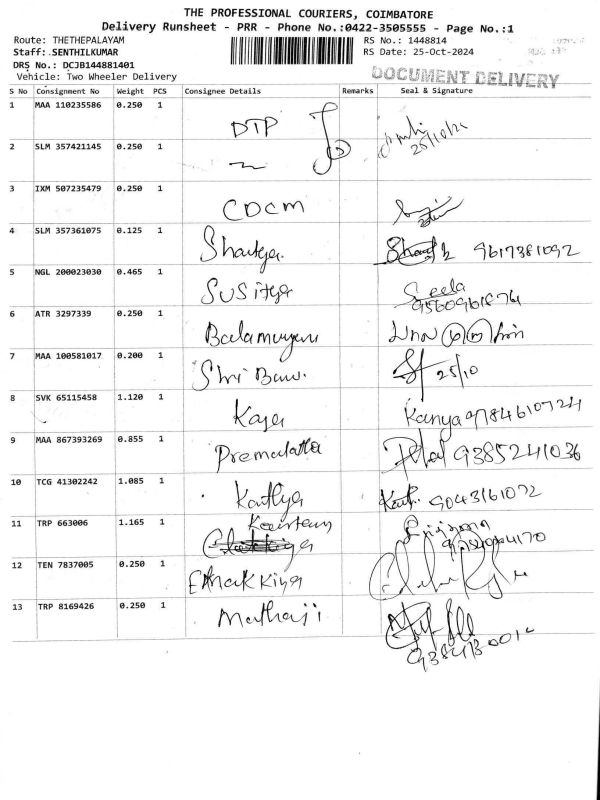 THE PROFESSIONAL COURIERS, COIMBATORE
Delivery Runsheet - PRR - Phone No.:0422-3505555 - Page No.:1
Route: THETHEPALAYAM RS No.: 1448814
Staff: SENTHILKUMAR RS Date: 25-Oct-2024
DRS No.: DCJB144881401
Vehicle: Two Wheeler Delivery DOCUMENT DELIVERY
S No Consignment No Weight PCS Consignee Details Remarks Seal & Signature
1 MAA 110235586 0.250 1 DTP 25/10/24
2 SLM 357421145 0.250 1
3 IXM 507235479 0.250 1 CDCM
4 SLM 357361075 0.125 1 9617381092
5 NGL 200023030 0.465 1 Susitya Seela
6 ATR 3297339 0.250 1 Balamurgan
7 MAA 100581017 0.200 1 Shri 25/10
8 SVK 65115458 1.120 1 Kaya Kanya 9784610724
9 MAA 867393269 0.855 1 Premalatha 9385241036
10 TCG 41302242 1.085 1 Kathya 9043161072
11 TRP 663006 1.165 1
12 TEN 7837005 0.250 1
13 TRP 8169426 0.250 1 Mathaji